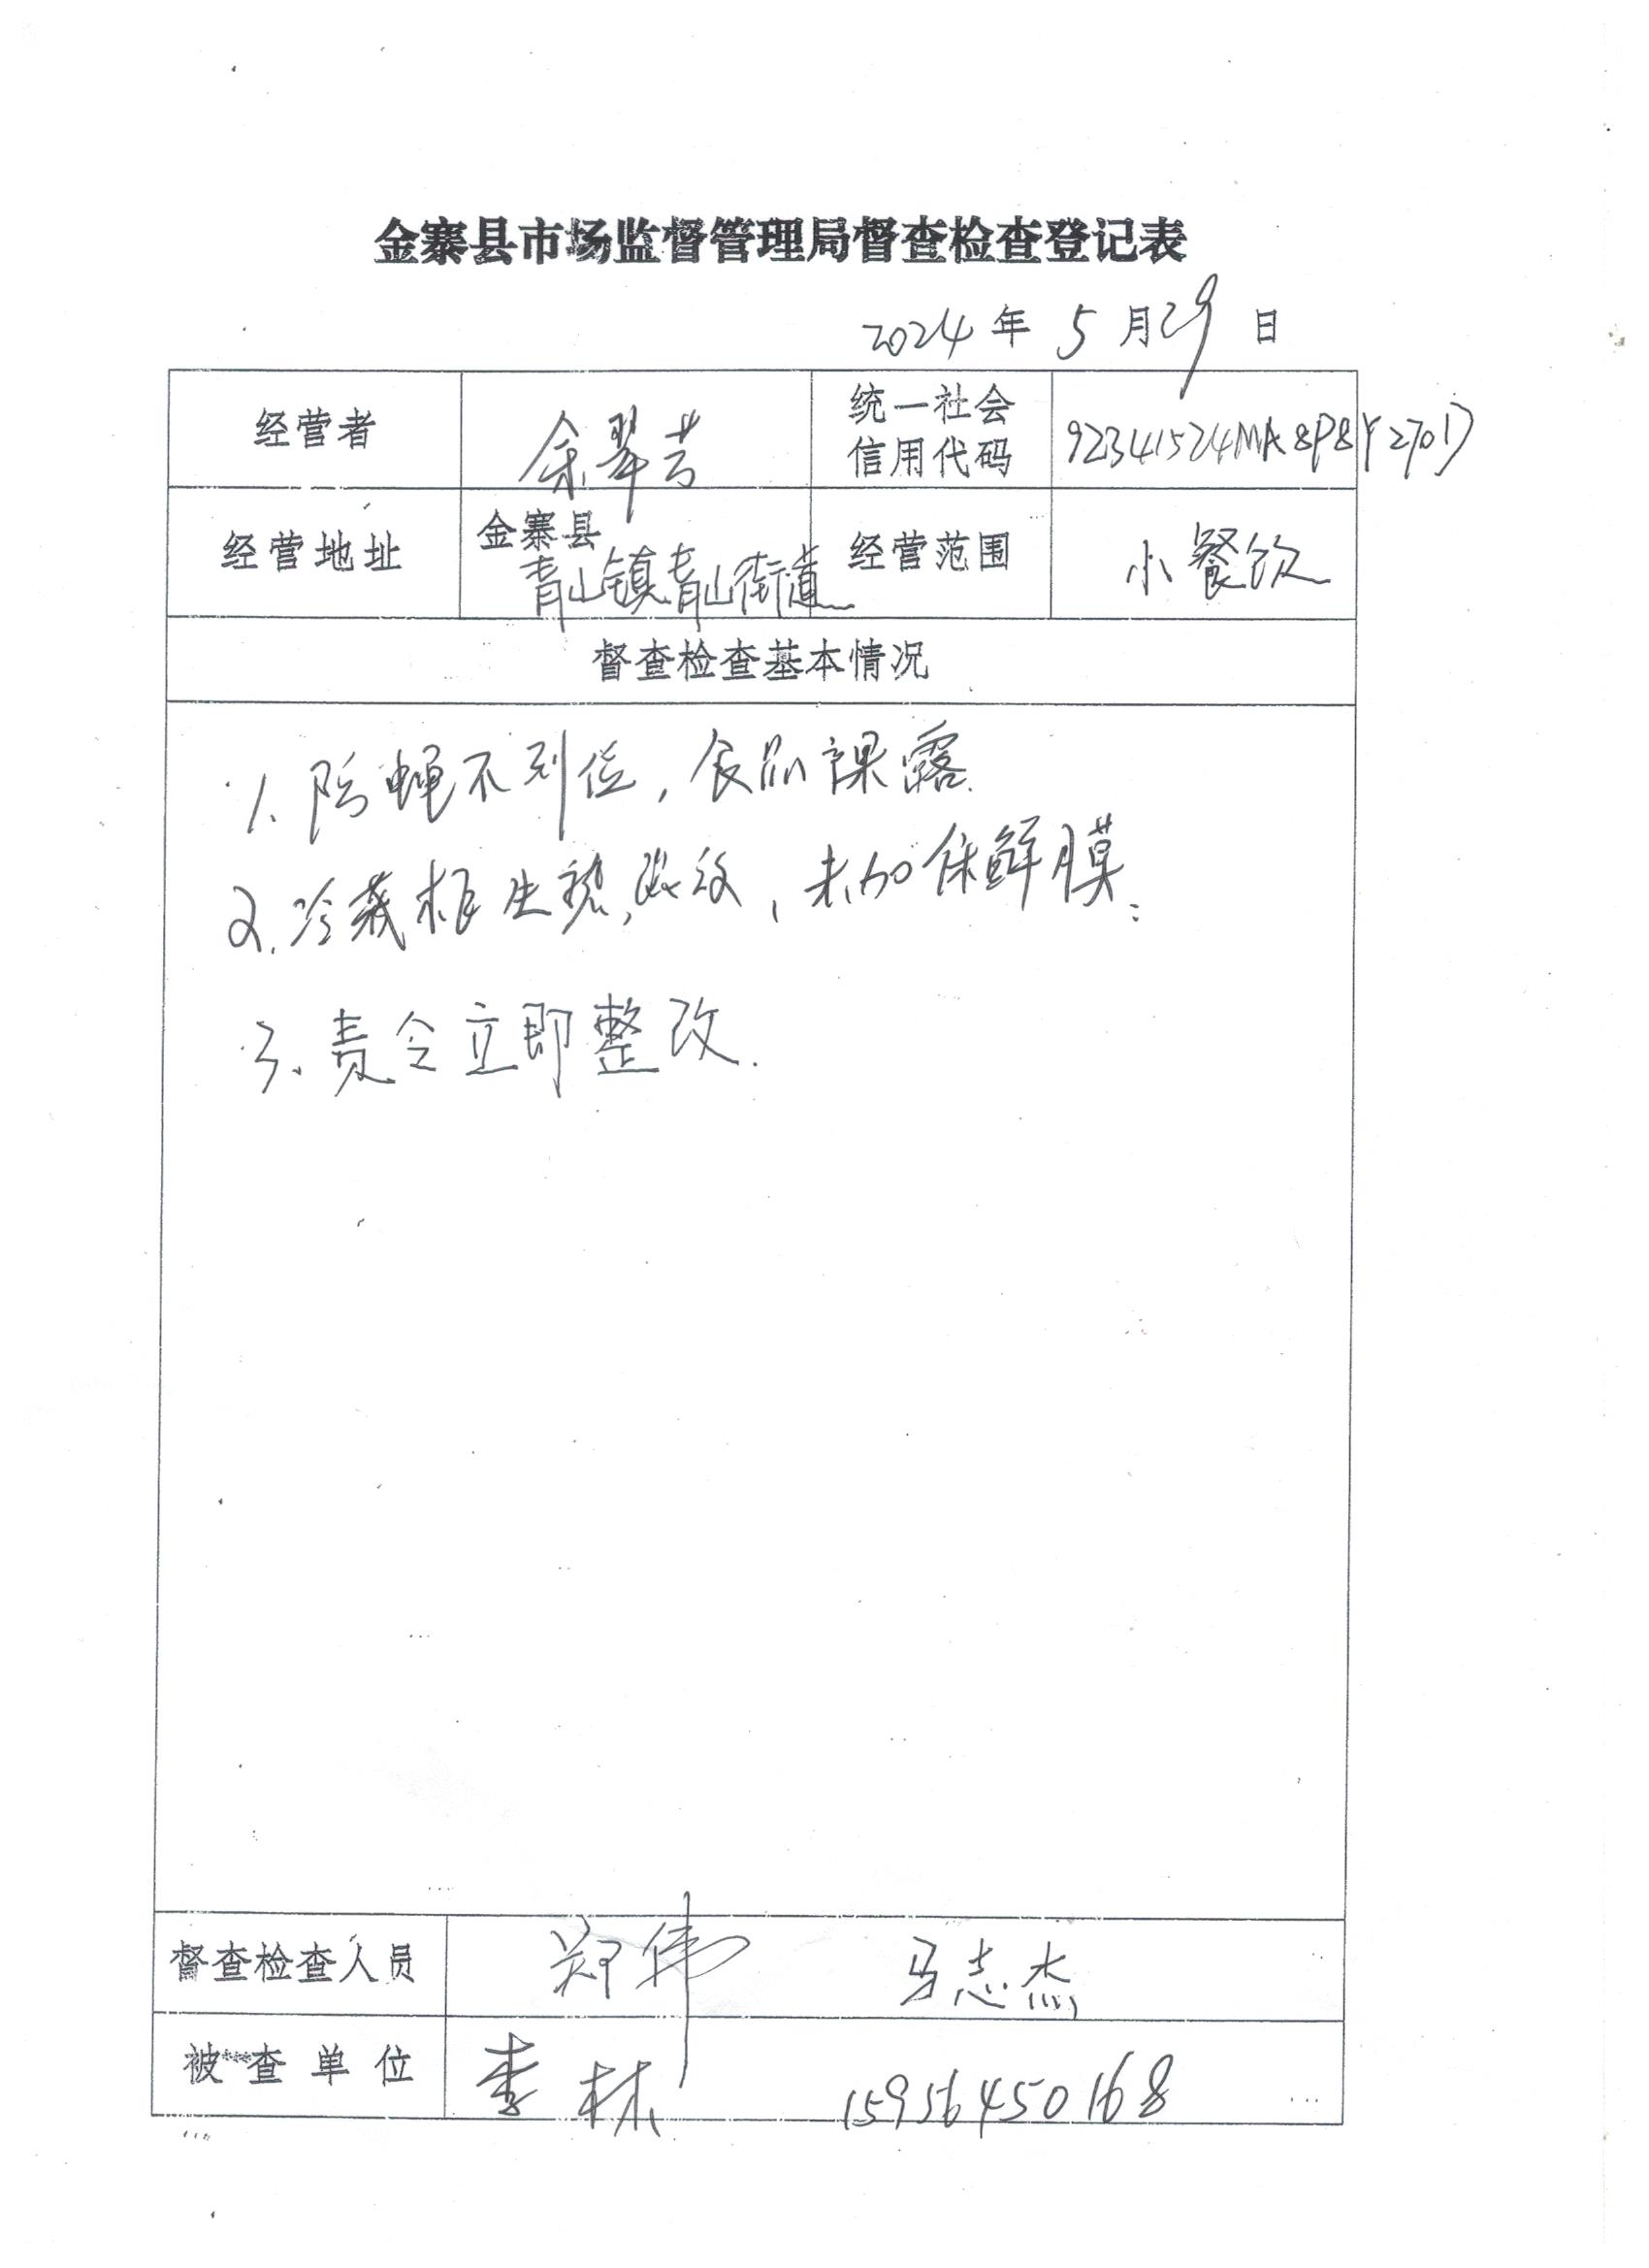 金寨县市场监督管理局督查检查登记表
2024年5月29日
经营者 余翠芳 统一社会信用代码 92341524MA8P8Y270D
经营地址 金寨县青山镇青山街道 经营范围 小餐饮
督查检查基本情况
1、防蝇不到位，食品裸露.
2.冷藏柜生熟，未加保鲜膜；
3、责令立即整改.
督查检查人员 郑伟 马志杰
被查单位 李林 15956450168